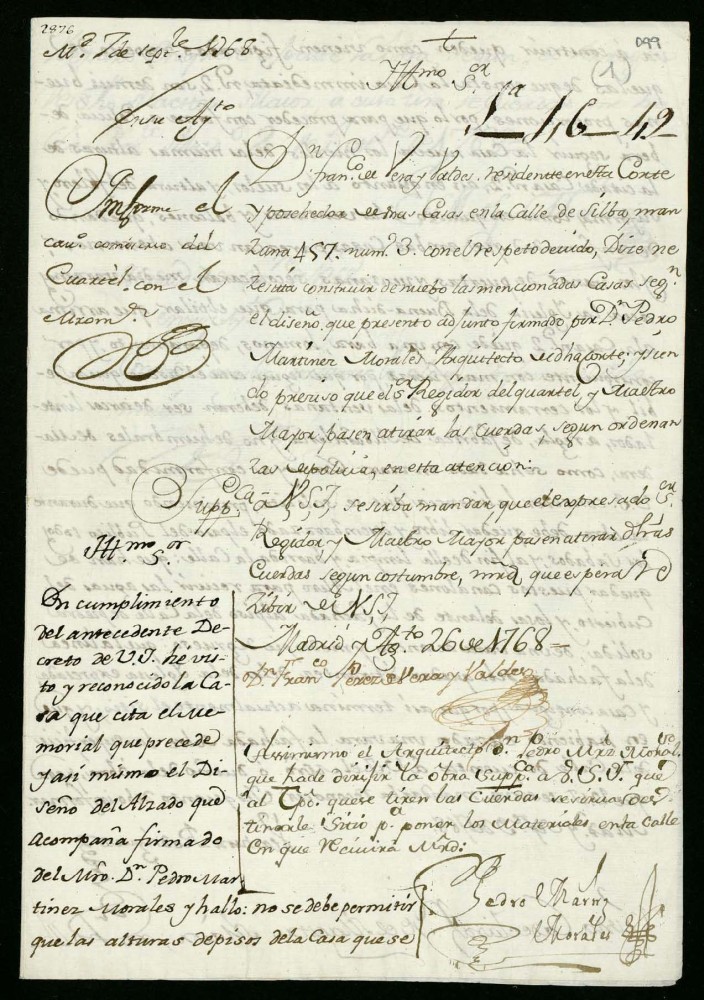 2876
D99
(1)
Md. 7 de septre. 1768
+
Illmo. Sor.
1-16-42
En su Aytto
Dn. Franco. de Vera y Valdes, residente en esta Corte
y posehedor de unas Casas en la Calle de Silba, man
zana 457. numo. 3. con el respeto devido, Dize ne
zesita construir de nuebo las mencionadas Casas segn.
el diseño, que presento adjunto firmado por Dn. Pedro
Martinez Morales Arquitecto de dha Corte; y sien
do preciso que el Sor. Regidor del quartel, y Maestro
Mayor pasen atirar las cuerdas, segun ordenan
zas de policia, en esta atencion:
Suppca. a V.S.I. se sirba mandar que el expresado Sor.
Regidor, y Maestro Mayor pasen atirar dhas
Cuerdas segun costumbre, mrd. que espera Re
zibir de V.S.I.
Madrid y Agto 26 de 1768
Dn. Franco Perez de Vera y Valdes
Assimismo el Arquitecto Dn. Pedro Mrz. Moral.
que hade dirijir la obra Suppca. a V.S.I. que
al Tpo. que se tiren las Cuerdas se sirva Des
tinarle Sitio pa. poner los Materiales en la Calle
En que Recivirá Mrd:
Pedro Marnz
Morales
Informe el
cavo. comisario del
Quartel con el
Mrom.or
Illmo. Sor.
En cumplimiento
del antecedente De-
creto de V.I. hé vis-
to, y reconocido la Ca-
sa que cita el Me-
morial que precede
y asi mismo el Di-
seño del Alzado que
acompaña firmado
del Mro. Dn. Pedro Mar-
tinez Morales y hallo: no se debe permitir
que las alturas de pisos de la Casa que se